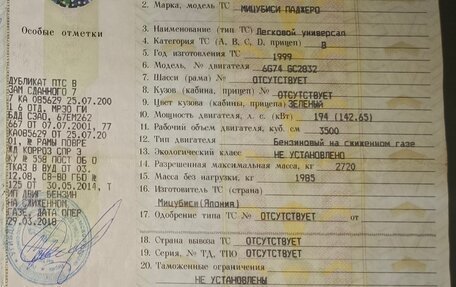 Особые отметки
ДУБЛИКАТ ПТС В
ЗАМ СДАННОГО 7
7 КА 085629 25.07.200
1, 6 ОТД. МРЭО ГИ
БДД СЗАО, 67ЕМ262
667 ОТ 07.07.2001, 77
КА085629 ОТ 25.07.20
01, № РАМЫ ПОВРЕ
ЖД КОРРОЗ СПР Э
КУ № 558 ПОСТ ОБ О
ТКАЗ В ВУД ОТ 03.
12.08, СВ-ВО ГБО №
125 ОТ 30.05.2014, Т
ИП ДВИГ БЕНЗИН
НА СЖИЖЕННОМ
ГАЗЕ, ДАТА ОПЕР
29.03.2018
2. Марка, модель ТС МИЦУБИСИ ПАДЖЕРО
3. Наименование (тип ТС) Легковой универсал
4. Категория ТС (А, В, С, D, прицеп) В
5. Год изготовления ТС 1999
6. Модель, № двигателя 6G74 GC2832
7. Шасси (рама) № ОТСУТСТВУЕТ
8. Кузов (кабина, прицеп) № ОТСУТСТВУЕТ
9. Цвет кузова (кабины, прицепа) ЗЕЛЕНЫЙ
10. Мощность двигателя, л. с. (кВт) 194 (142.65)
11. Рабочий объем двигателя, куб. см 3500
12. Тип двигателя Бензиновый на сжиженном газе
13. Экологический класс НЕ УСТАНОВЛЕНО
14. Разрешенная максимальная масса, кг 2720
15. Масса без нагрузки, кг 1985
16. Изготовитель ТС (страна)
Мицубиси (Япония)
17. Одобрение типа ТС № ОТСУТСТВУЕТ
18. Страна вывоза ТС ОТСУТСТВУЕТ
19. Серия, № ТД, ТПО ОТСУТСТВУЕТ
20. Таможенные ограничения
НЕ УСТАНОВЛЕНЫ